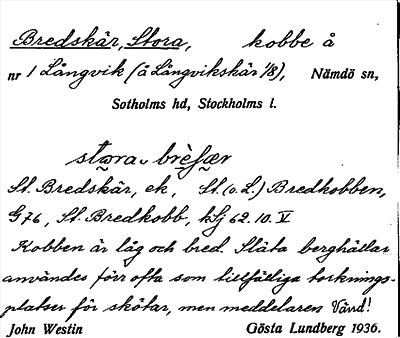 Bredskär, Stora, kobbe å
nr 1 Långvik (å Långvikskär 1/8), Nämdö sn,
Sotholms hd, Stockholms l.
stωra brèʃær
St. Bredskär, ek, St. (o. L.) Bredkobben,
G 76, St. Bredkobb, kSj 62. 10. V
Kobben är låg och bred. Släta berghällar
användes förr ofta som tillfälliga torknings-
platser för skötar, men meddelaren Vänd!
John Westin Gösta Lundberg 1936.